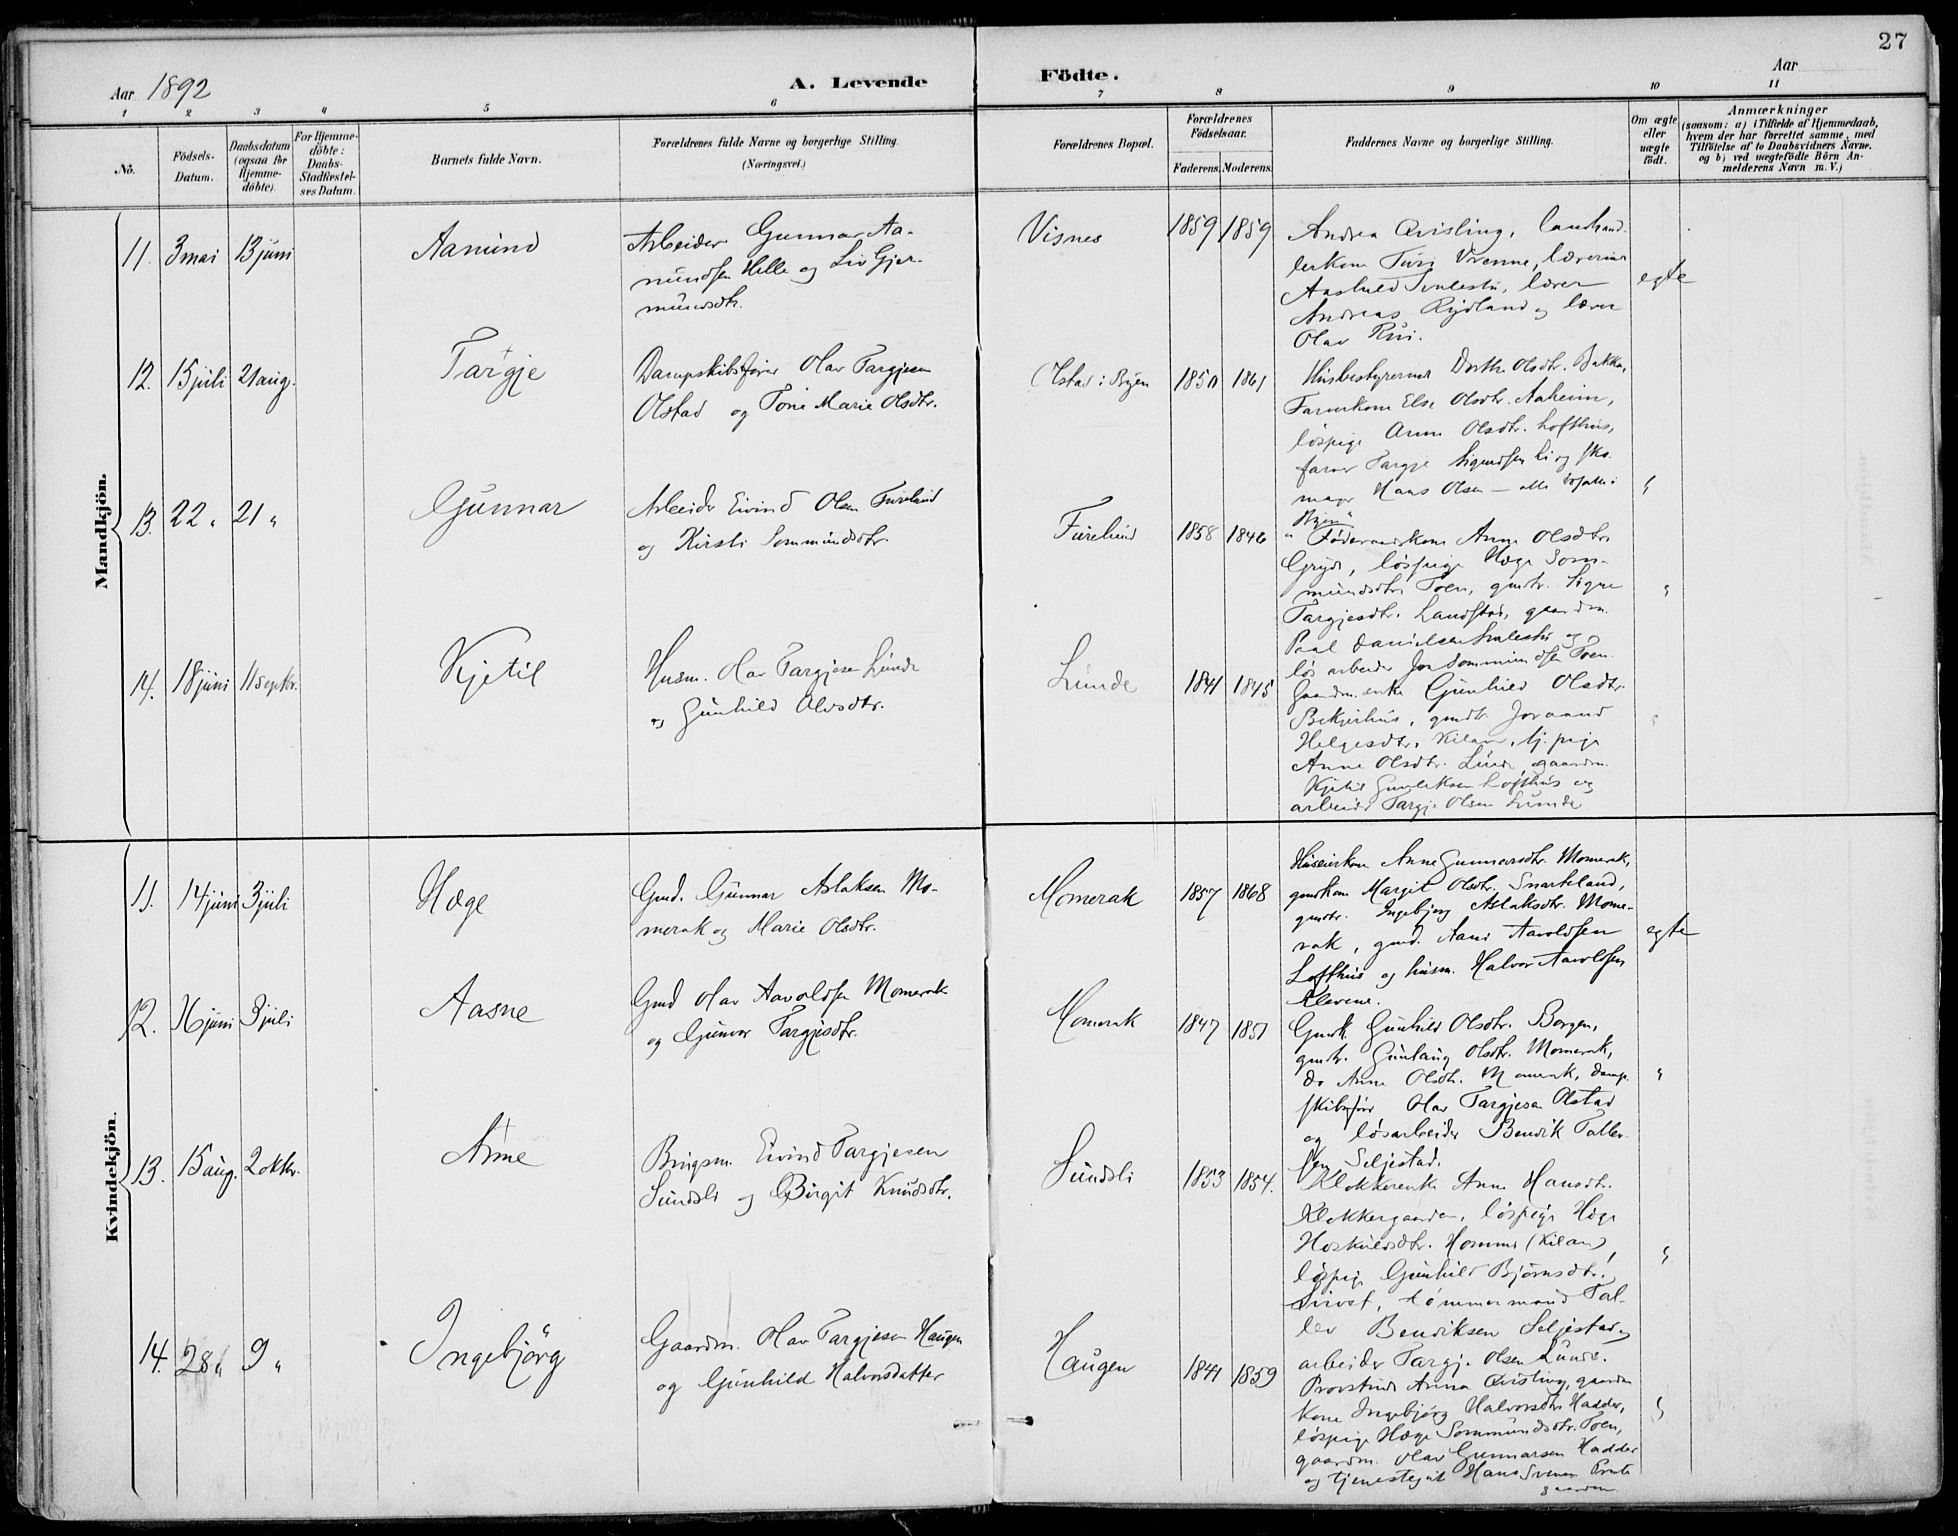 27
Aar 1892
A. Levende
Födte.
Aar
1 2 3 4 5 6 7 8 9 10 11
No.
Födsels-
Datum.
Daabsdatum
(ogsaa for
Hjemme-
döbte).
For Hjemme-
döbte:
Daabs-
Stadfæstel-
ses Datum.
Barnets fulde Navn.
Forældrenes fulde Navne og borgerlige Stilling.
(Næringsvei.)
Forældrenes Bopæl.
Forældrenes
Födselsaar.
Faderens. Moderens.
Faddernes Navne og borgerlige Stilling.
Om ægte
eller
uægte
födt.
Anmærkninger
(saasom: a) i Tilfælde af Hjemmedaab,
hvem der har forrettet samme, med
Tilföielse af to Daabsvidners Navne.
og b) ved uægtefödte Börn An-
melderens Navn m. V.)
Mandkjön.
11. 3 mai 13 juni
Aamund
Arbeider Gunnar Aa-
mundsen Helle og Liv Gjer-
mundsdtr.
Visnes
1859 1859
Andrea Qvisling, landhand-
lerkone Turi Vrenne, lærerinde
Aashild, lærer
Andreas Rydland og lærer
Olav Rui.
egte
12. 15 juli 21 aug.
Targje
Dampskibsfører Olav Targjesen
Olstad og Tone Marie Olsdtr.
Olstad i Byen
1850 1861
Husbestyrerinde Dorthe Olsdtr. Bakka,
Farverkone Else Olsdtr. Aaheim,
løspige Anne Olsdtr. Lofthus,
farver Targje Sigurdsen Li og sko-
mager Hans Olsen — alle
Byen
"
13. 22 " 21 "
Gunnar
Arbeider Eivind Olsen Furelund
og Kirsti Sommundsdtr.
Furelund
1858 1846
Føderaadskone Anne Olsdtr.
løspige Hæge Som-
mundsdtr. Toen, gmdtr. Signe
Targjesdtr. Landstad, gaardm.
Paal Danielsen og
løsarbeider Jon Sommundsen Toen.
"
14. 18 juni 11 septbr.
Kjetil
Husm. Olav Targjesen Lunde
og Gunhild Olsdtr.
Lunde
1841 1845
Gaardm. enke Gunhild Olsdtr.
gmdtr. Joraand
Helgesdtr. Kilan, tj. pige
Anne Olsdtr. Lunde, gaardm.
Kjetil Gunleksen Lofthus og
arbeider Targje Olsen Lunde
"
Kvindekjön.
11. 14 juni 3 juli
Hæge
Gmd. Gunnar Aslaksen Mo-
merak og Marie Olsdtr.
Momerak
1857 1868
Huseierkone Anne Gunnarsdtr. Momerak,
gmdkone Margit Olsdtr. Snarteland,
gmdtr. Ingebjørg Aslaksdtr. Mome-
rak, gmd. Aani Aavoldsen
Lofthus og husm. Halvor Aavoldsen
Klevene.
egte
12. 16 juni 3 juli
Aasne
Gmd Olav Aavoldsen Momerak
og Gunvor Targjesdtr.
Momerak
1847 1851
Gmdk. Gunhild Olsdtr. Borgen,
gmdtr. Gunlaug Olsdtr. Momerak,
do Anne Olsdtr. Momerak, damp-
skibsfører Olav Targjesen Olstad
og løsarbeider Bendik Tallev-
sen Seljestad.
"
13. 15 aug. 2 oktbr.
Anne
Brugsm. Eivind Targjesen
Sundsli og Birgit Knudsdtr.
Sundsli
1853 1854.
Klokkerenke Anne Hansdtr.
Klokkergaarden, løspige Hæge
Hoskuldsdtr. Homme (Kilan),
løspige Gunhild Bjørnsdtr.
tømmermand Tal-
lev Bendiksen Seljestad og
arbeider Targje Olsen Lunde.
"
14. 28 " 9 "
Ingebjörg
Gaardm. Olav Targjesen Haugen
og Gunhild Halvorsdatter
Haugen
1841 1859
Provstinde Anna Qvisling, gaardm
kone Ingebjørg Halvorsdtr. Hadder,
løspige Hæge Sommundsdtr. Toen,
gaardm. Olav Gunnarsen Hadder
og tjenestegut Hans Svensen Prest-
gaarden.
"